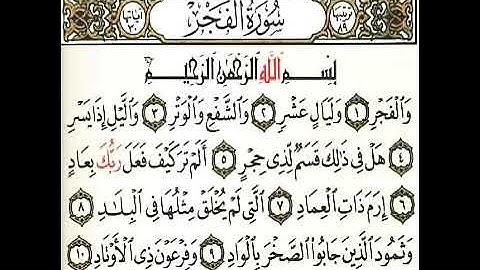 سُورَةُ الْفَجْرِ
بِسْمِ اللَّهِ الرَّحْمَٰنِ الرَّحِيمِ
وَالْفَجْرِ ١ وَلَيَالٍ عَشْرٍ ٢ وَالشَّفْعِ وَالْوَتْرِ ٣ وَاللَّيْلِ إِذَا يَسْرِ
٤ هَلْ فِي ذَٰلِكَ قَسَمٌ لِّذِي حِجْرٍ ٥ أَلَمْ تَرَ كَيْفَ فَعَلَ رَبُّكَ بِعَادٍ
٦ إِرَمَ ذَاتِ الْعِمَادِ ٧ الَّتِي لَمْ يُخْلَقْ مِثْلُهَا فِي الْبِلَادِ ٨
وَثَمُودَ الَّذِينَ جَابُوا الصَّخْرَ بِالْوَادِ ٩ وَفِرْعَوْنَ ذِي الْأَوْتَادِ ١٠